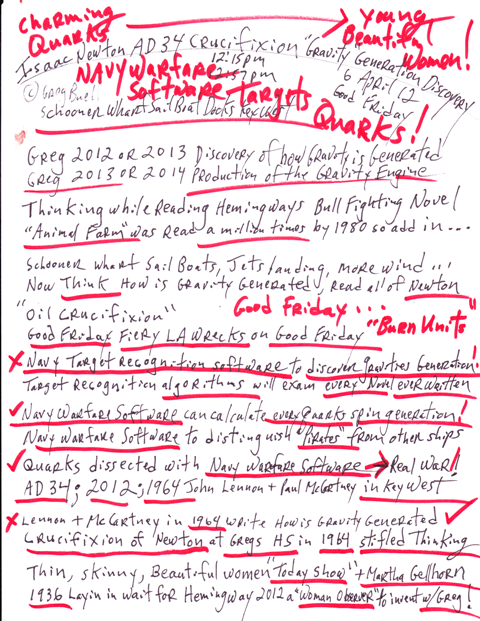 Charming Quarks → Young Beautiful Women!
Isaac Newton AD 34 Crucifixion "Gravity" Generation Discovery
12:15pm
12:57pm
6 April 12
Good Friday
NAVY WARFARE
Software Targets
Quarks!
© Greg Buell
Schooner Wharf Sail Boat Docks Key West
Greg 2012 or 2013 Discovery of how Gravity is Generated
Greg 2013 or 2014 Production of the Gravity Engine
Thinking while Reading Hemingways Bull Fighting Novel
"Animal Farm" was read a million times by 1980 so add in...
Schooner Wharf Sail Boats, Jets landing, more wind...
Now Think How is Gravity Generated, read all of Newton
"Oil Crucifixion"
Good Friday...
Good Friday Fiery LA Wrecks on Good Friday
"Burn Units"
X Navy Target Recognition software to discover gravities Generation!
Target Recognition algorithms will exam every Novel ever written
✓ Navy Warfare Software can calculate every Quarks spin generation!
Navy Warfare Software to distinguish "Pirates" from other ships
✓ Quarks dissected with Navy Warfare Software → Real War!
AD 34; 2012; 1964 John Lennon + Paul McCartney in Key West
X Lennon + McCartney in 1964 write How is Gravity Generated ✓
Crucifixion of Newton at Gregs HS in 1964 stifled Thinking
Thin, skinny, Beautiful women "Today show" + Martha Gellhorn
1936 Layin in wait for Hemingway 2012 a "Woman Observer" to invent w/Greg!